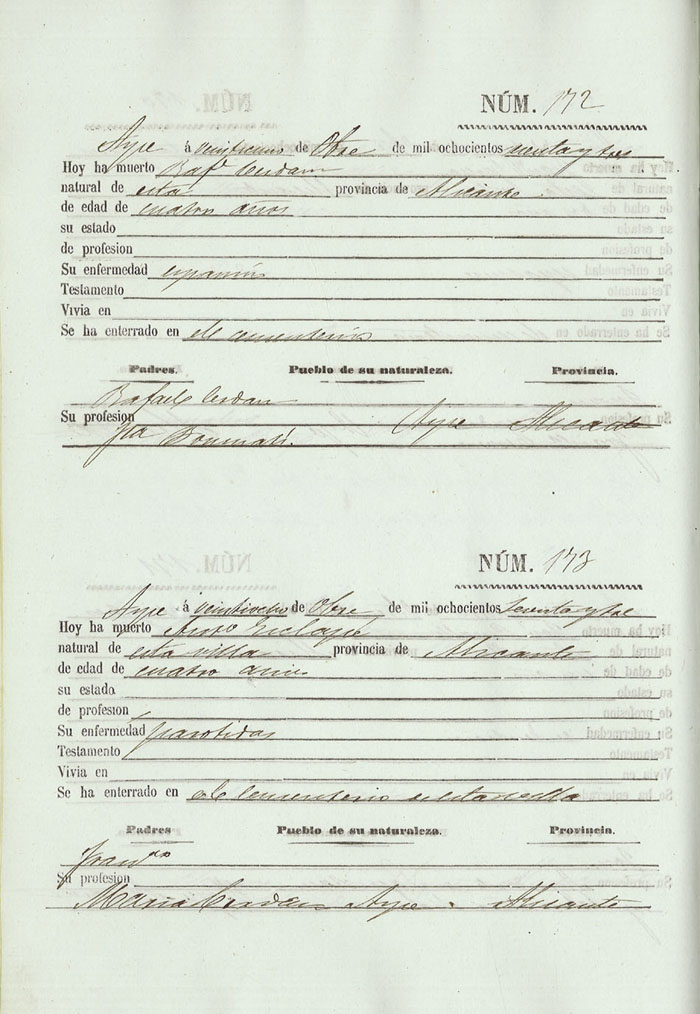 NÚM. 172
Aspe á veinticinco de Obre de mil ochocientos setenta y tres
Hoy ha muerto Raf.l Cerdan
natural de esta provincia de Alicante
de edad de cuatro años
su estado
de profesion
Su enfermedad
Testamento
Vivia en
Se ha enterrado en el cementerio
Padres. Pueblo de su naturaleza. Provincia.
Rafael Cerdan
Su profesion Aspe Alicante
Fca Bonmati.
NÚM. 173
Aspe á veintiocho de Obre de mil ochocientos setenta y tres
Hoy ha muerto Anto
natural de esta villa provincia de Alicante
de edad de cuatro años
su estado
de profesion
Su enfermedad parotidas
Testamento
Vivia en
Se ha enterrado en el Cementerio de esta villa
Padres Pueblo de su naturaleza. Provincia.
Franco
Su profesion
Maria Cerdan Aspe. Alicante